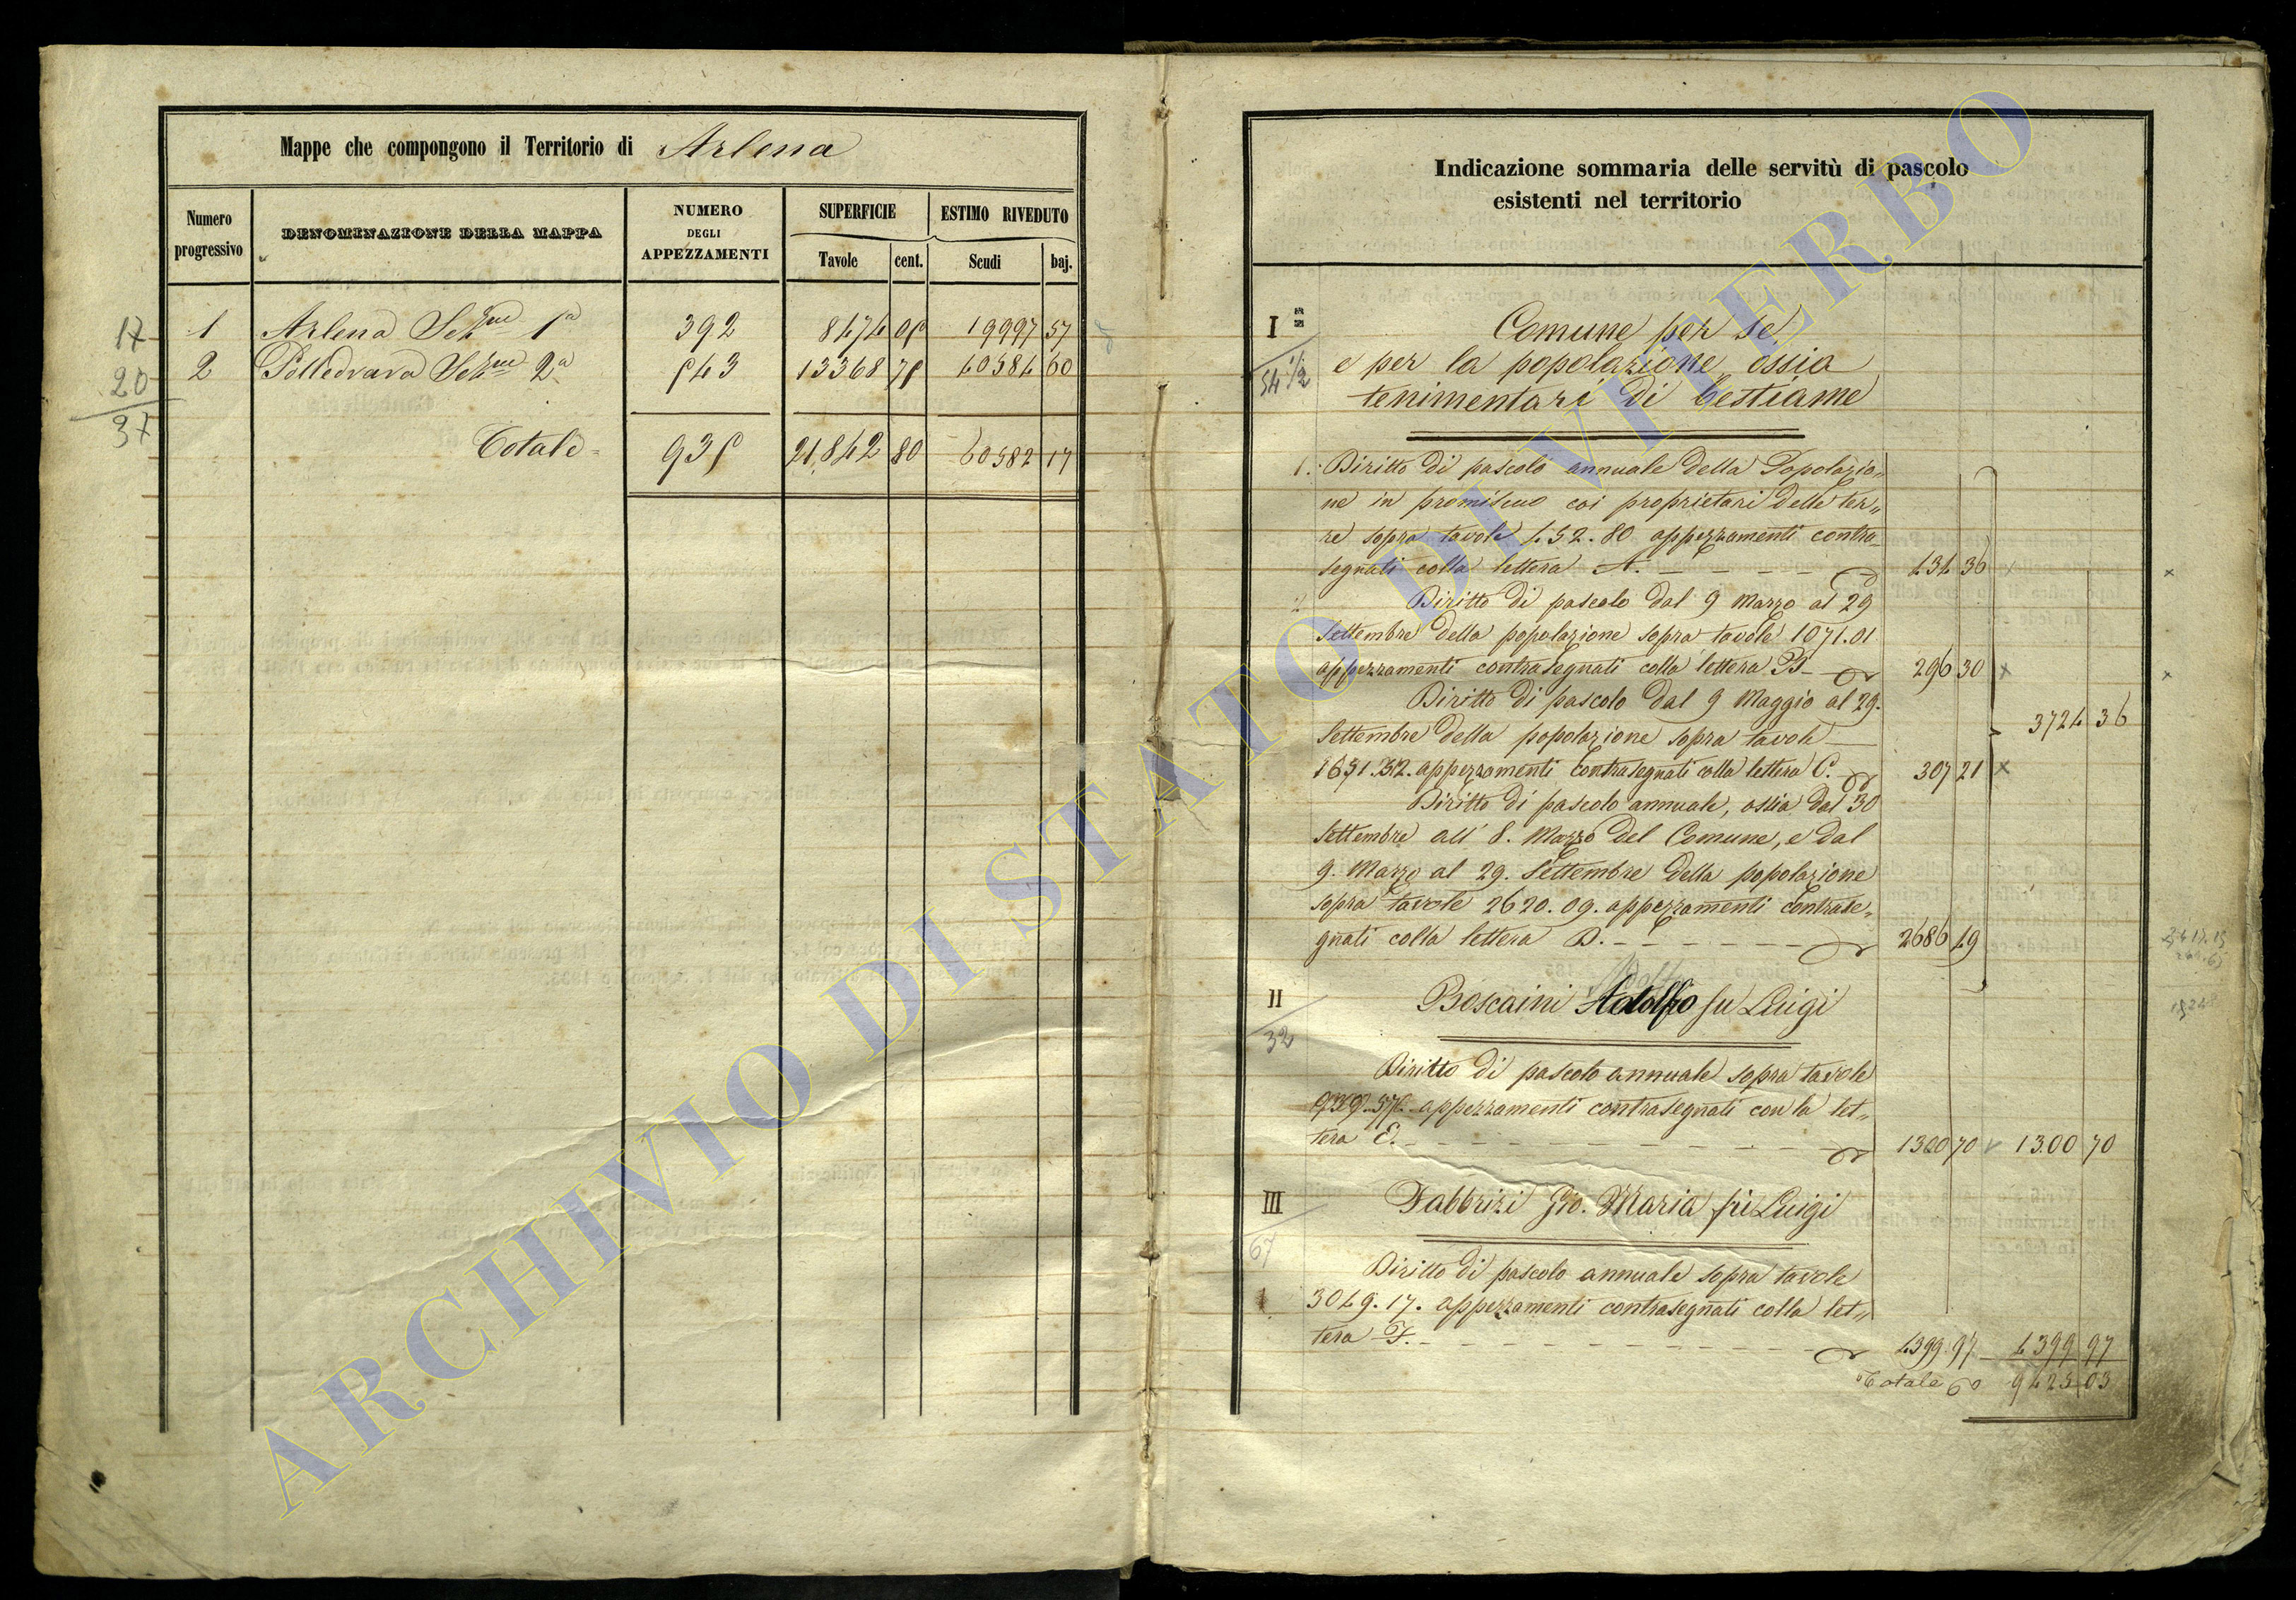 Mappe che compongono il Territorio di Arlena
Numero progressivo
DENOMINAZIONE DELLA MAPPA
NUMERO DEGLI APPEZZAMENTI
SUPERFICIE
ESTIMO RIVEDUTO
Tavole cent. Scudi baj.
17 1 Arlena Sezne 1a 392 8474 05 19997 57
20 2 Polledrara Sezne 2a 543 13368 75 40584 60
37
Totale = 935 21,842 80 60582 17
Indicazione sommaria delle servitù di pascolo
esistenti nel territorio
I
Comune per se
54 1/2 e per la popolazione ossia
tenimentari di bestiame
1. Diritto di pascolo annuale della Popolazio„
ne in promiscuo coi proprietari delle ter„
re sopra tavole 452.80 appezzamenti contra„
segnati colla lettera A. 434 36
2 Diritto di pascolo dal 9 Marzo al 29
Settembre della popolazione sopra tavole 1071.01
appezzamenti contrasegnati colla lettera B 296 30
Diritto di pascolo dal 9 Maggio al 29.
Settembre della popolazione sopra tavole 3724 36
1651.32. appezzamenti contrasegnati colla lettera C. 307 21
Diritto di pascolo annuale, ossia dal 30
Settembre all' 8. Marzo del Comune, e dal
9. Marzo al 29. Settembre della popolazione
sopra tavole 2620.09. appezzamenti contrase„
gnati colla lettera D. 2686 49
II Boscaini Adolfo fu Luigi
32
Diritto di pascolo annuale sopra tavole
appezzamenti contrasegnati con la let„
tera E. 1300 70 1300 70
III Fabbrizi Gio. Maria fu Luigi
67
Diritto di pascolo annuale sopra tavole
3049.17. appezzamenti contrasegnati colla let„
tera F. 4399.97 4399 97
Totale 9425 03
ARCHIVIO DI STATO DI VITERBO